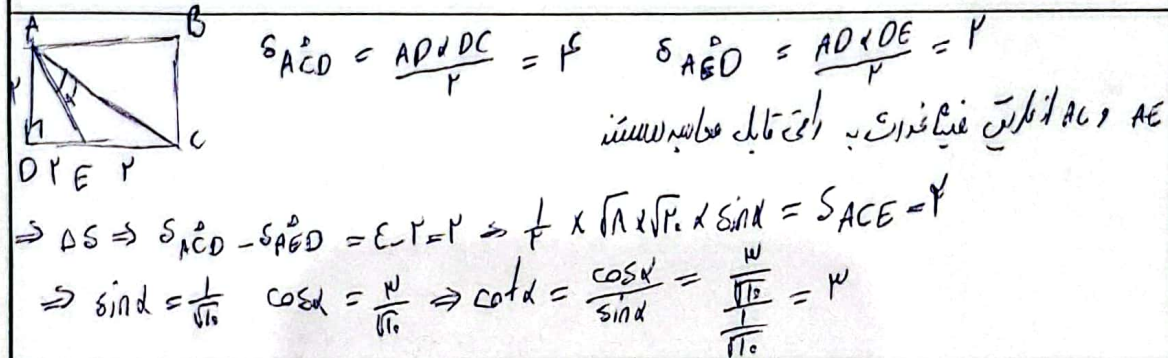 A B
S ACD = AD×DC / ۲ = ۴ S AED = AD×DE / ۲ = ۲
۲ α
AE و AC از طریق فیثاغورث به راحتی قابل محاسبه هستند
D ۲ E ۲ C
⇒ ΔS ⇒ S ACD - S AED = ٤-۲=۲ ⇒ ۱/۲ × √۸ × √۲۰ × sinα = S ACE = ۲
⇒ sinα = ۱/√۱۰ cosα = ۳/√۱۰ ⇒ cotα = cosα/sinα = (۳/√۱۰)/(۱/√۱۰) = ۳